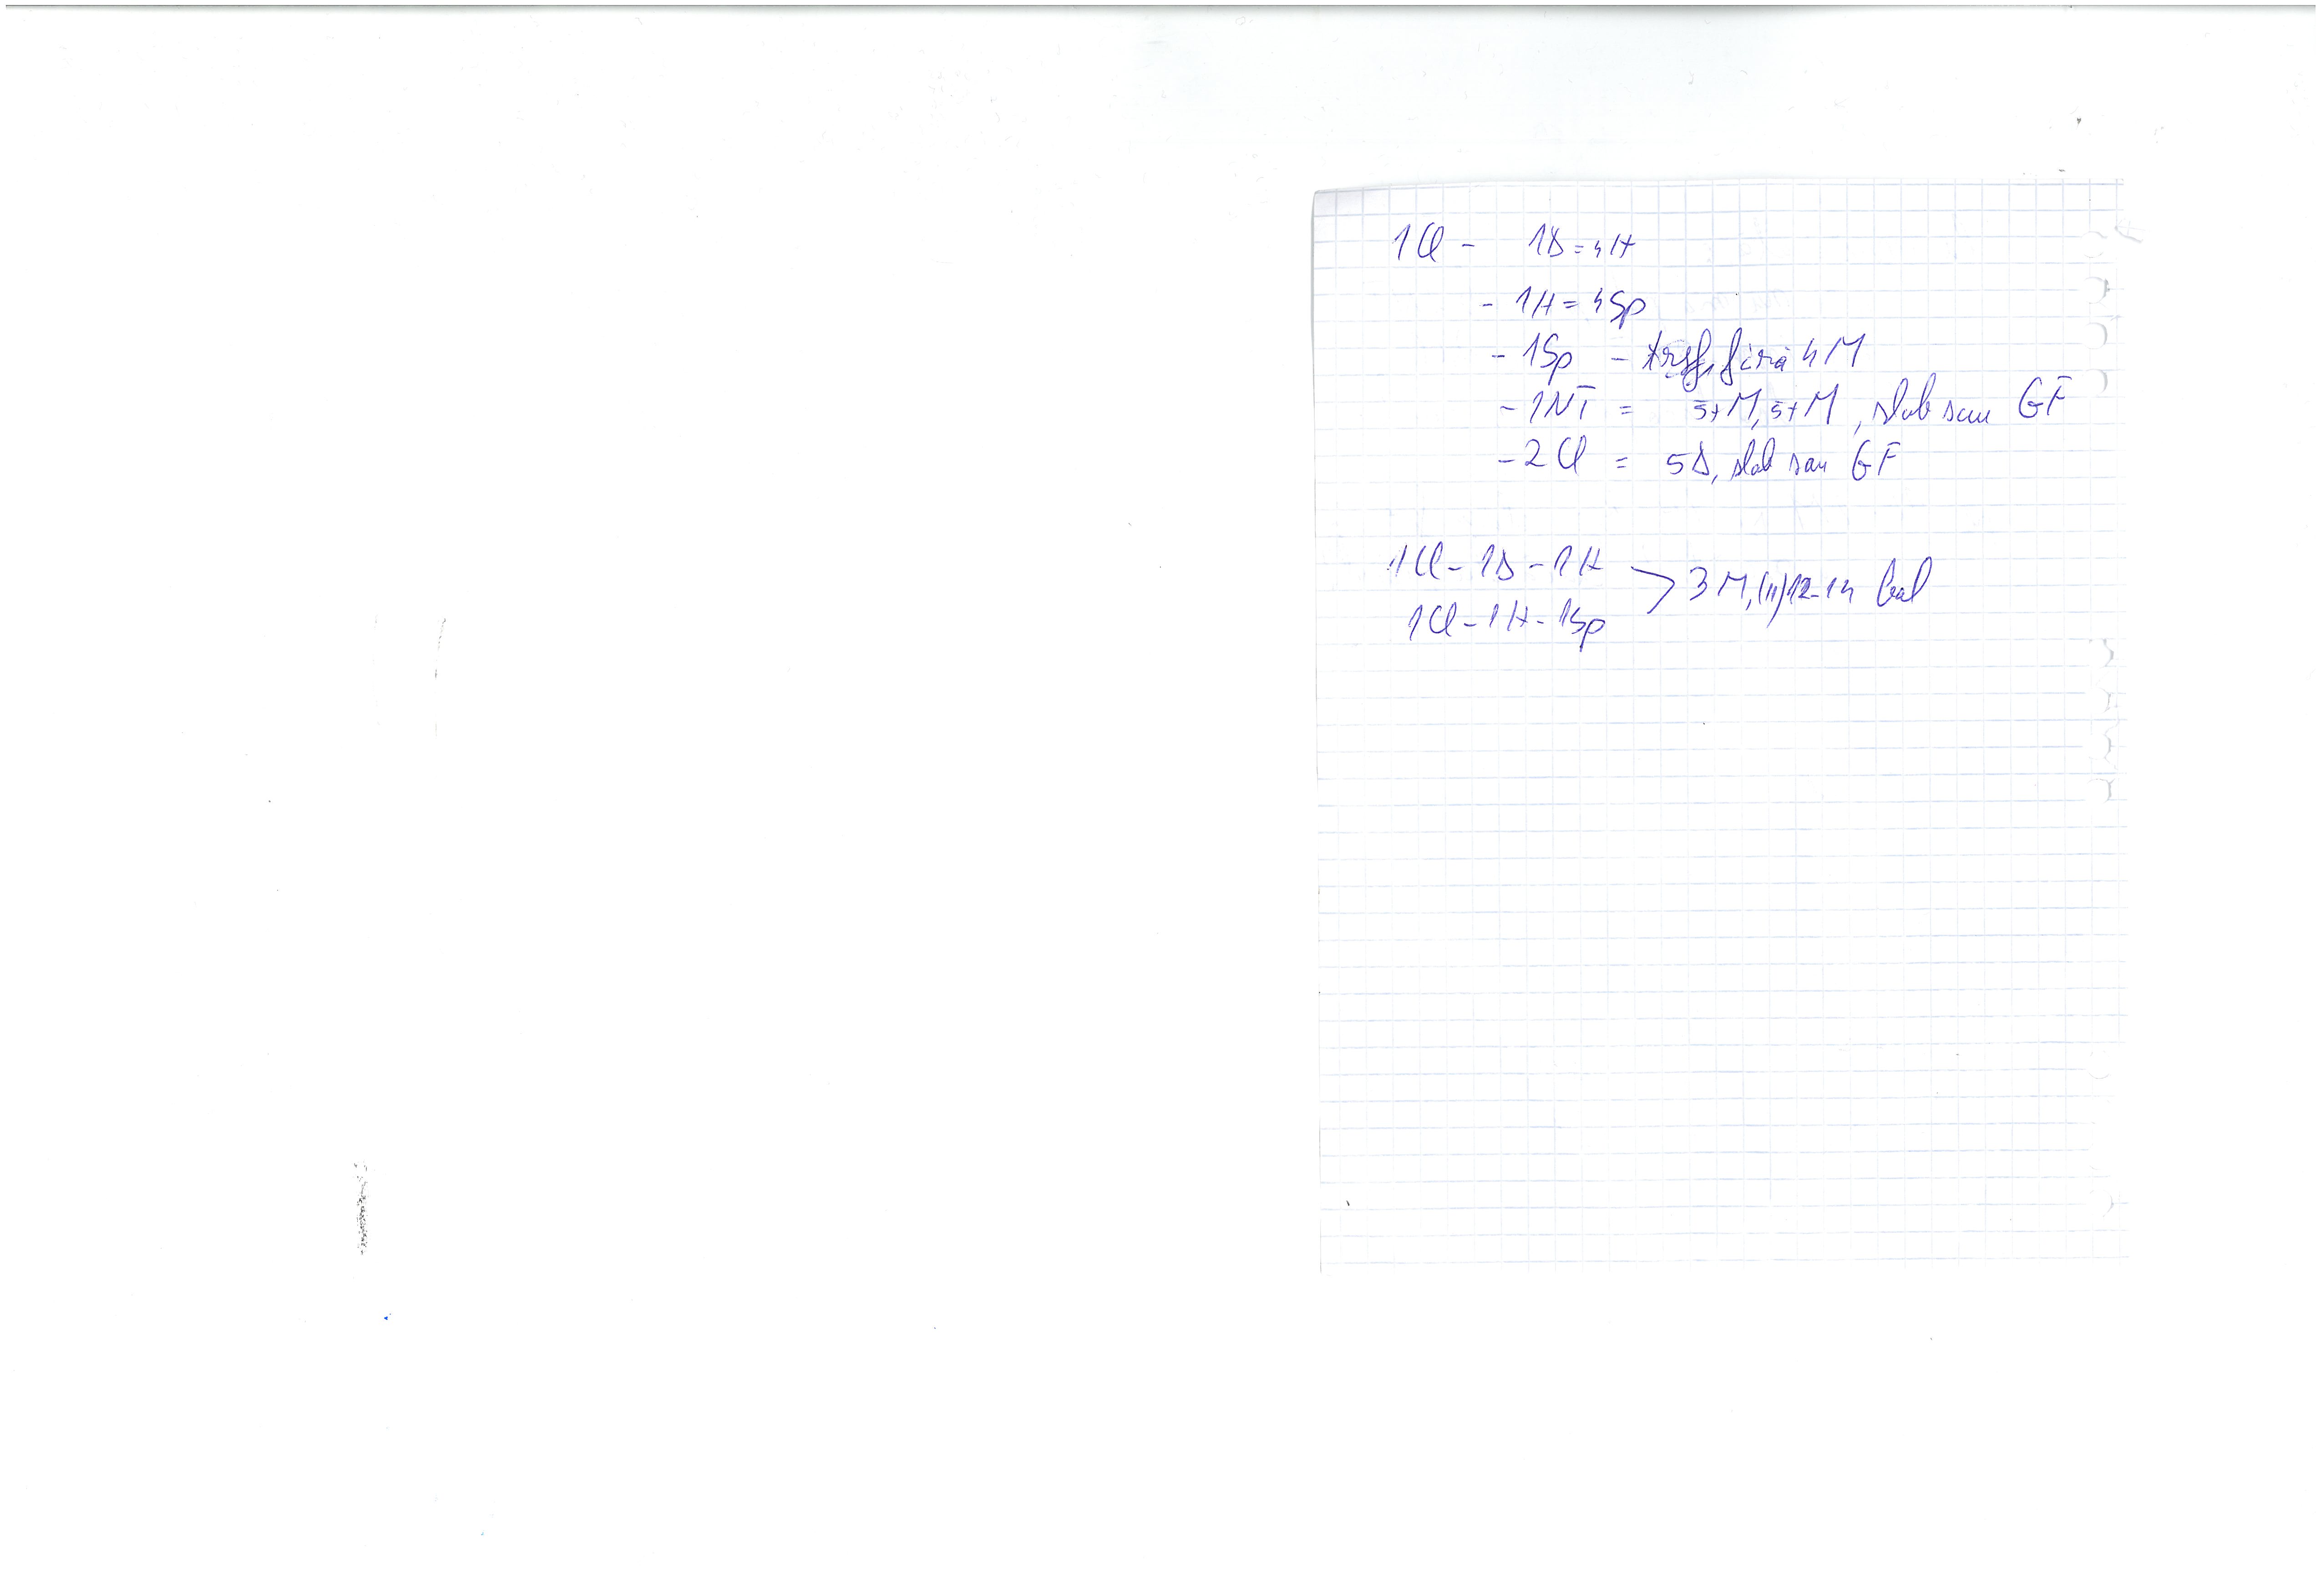 1Cl - 1D = 4H
- 1H = 4Sp
- 1Sp - trsf, fără 4M
- 1NT = 5+M, 5+M, slab sau GF
- 2Cl = 5D, slab sau GF
1Cl - 1D - 1H
1Cl - 1H - 1Sp > 3M, (11)12-14 bal